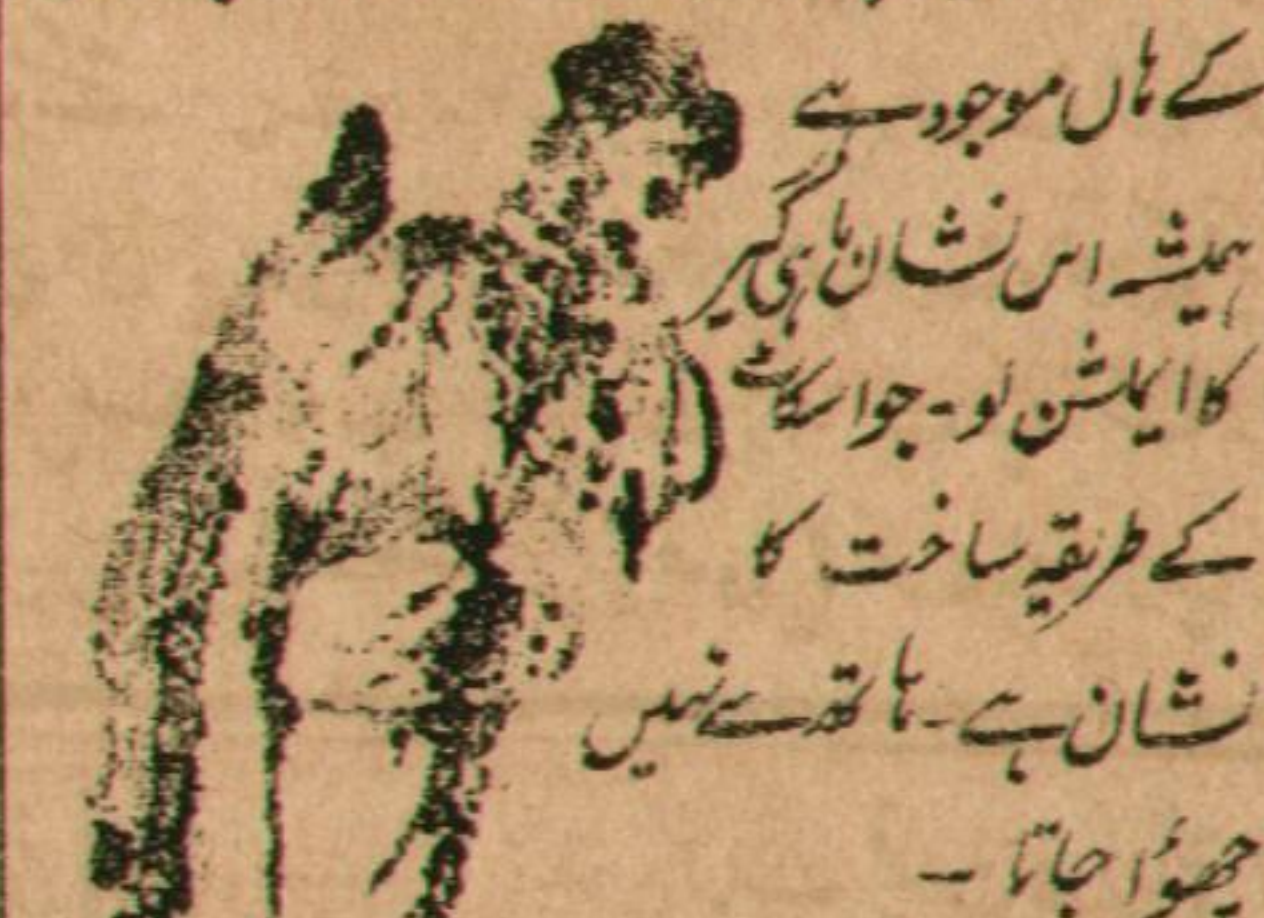 کے ہاں موجود ہے
ہمیشہ اس نشان ماہی گیر
کا ایملشن لو۔ جو اسکاٹ
کے طریقہ ساخت کا
نشان ہے۔ ہاتھ سے نہیں
چھوُا جاتا ۔